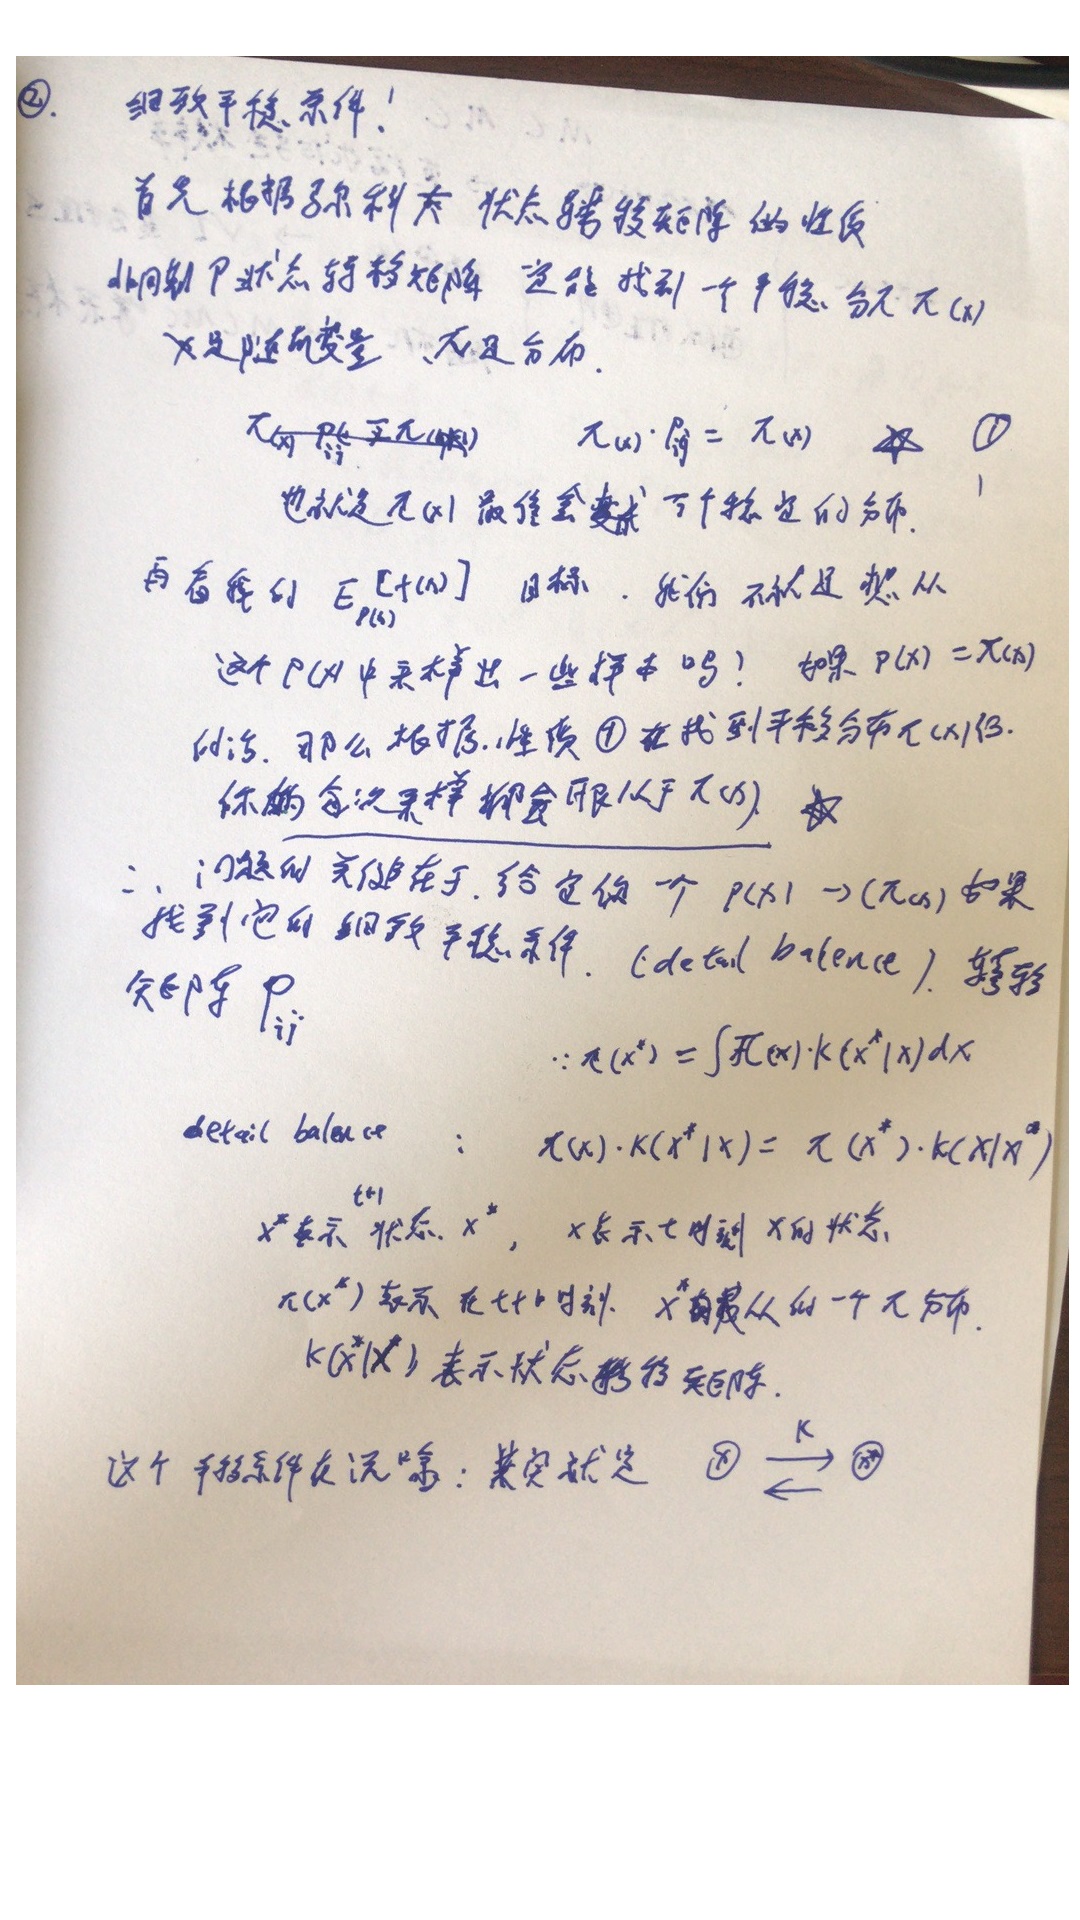 ②. 细致平稳条件!
首先根据马尔科夫 状态转移矩阵的性质
非周期 P 状态转移矩阵 一定能找到一个平稳分布 π(x)
x是随机变量、π是分布.
π(x)·Pij = π(x) ☆ ①
也就是π(x)最终会变成一个稳定的分布.
再看我的 E_{p(x)}[f(x)] 目标. 我们不就是想从
这个P(x)中采样出一些样本吗? 如果 P(x) = π(x)
的话. 那么根据性质①在找到平移分布π(x)后.
你的每次采样都会服从于π(x). ☆
∴ 问题的关键在于. 给定你一个 P(x) → (π(x)) 如果
找到它的细致平稳条件. (detail balence). 转移
矩阵 Pij
∵ π(x*) = ∫π(x)·k(x*|x)dx
detail balence : π(x)·k(x*|x) = π(x*)·k(x|x*)
x*表示 t+1 状态 x*, x表示t时刻 x的状态.
π(x*) 表示在t+1时刻. x*服从的一个π分布.
k(x*|x*) 表示状态转移矩阵.
这个平移条件在说啥: 其实就是 ⓧ K → ← ⓧ*